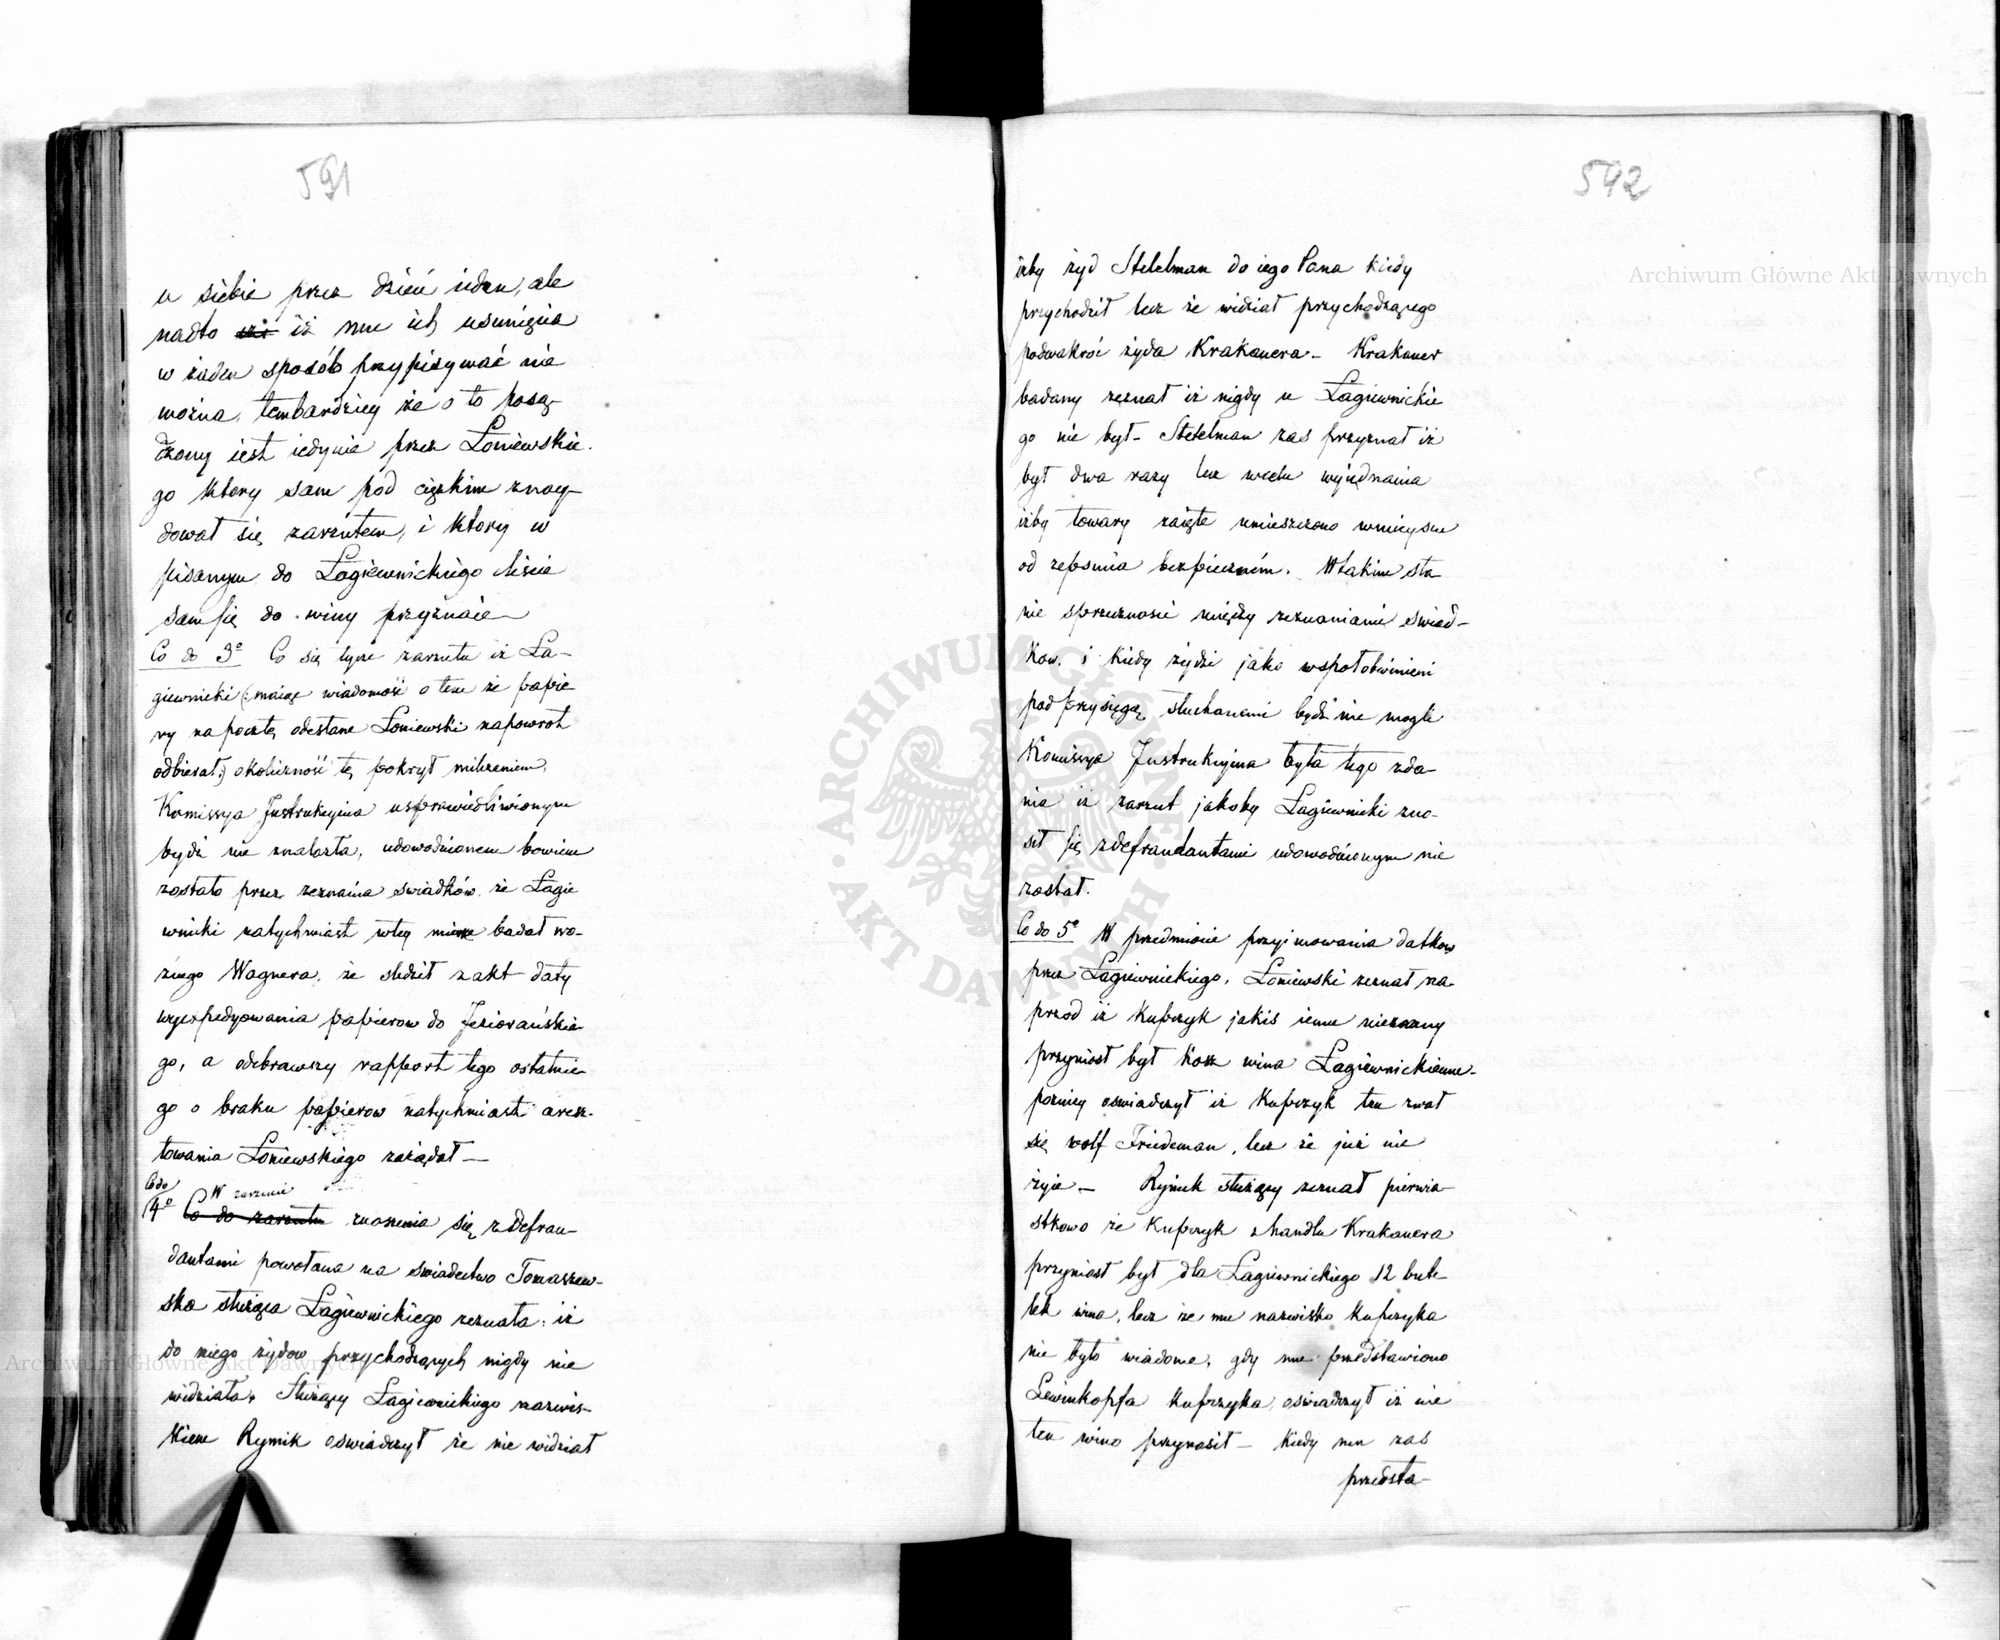 591
u siebie przez dzień ieden, ale
nadto iż mu ich usunięcia
w żaden sposób przypisywać nie
można, tembardziey że o to posą-
dzony iest iedynie przez Łoniewskie-
go ktory sam pod ciężkim znay-
dował się zarzutem, i ktory w
pisanym do Łagiewnickiego liscie
sam się do winy przyznaie
Co do 3º Co się tycze zarzutu iż Ła-
giewnicki (: maiąc wiadomość o tem że papie
ry na pocztę odesłane Łoniewski napowrot
odbierał:) okoliczność tę pokrył milczeniem,
Komissya Instrukcyina usprawiedliwionym
bydź nie znalazła, udowodnionem bowiem
zostało przez zeznania swiadków że Łagie
wnicki natychmiast w tey mierze badał wo-
znego Wagnera, że sledził z akt daty
wyexpedyowania papierow do Jeziorańskie-
go, a odebrawszy rapport tego ostatnie-
go o braku papierow natychmiast aresz-
towania Łoniewskiego zażądał —
Co do
4º Co do zarzutu W zarzucie znoszenia się z defrau-
dantami powołana na swiadectwo Tomaszew-
ska służąca Łagiewnickiego zeznała, iż
do niego żydow przychodzących nigdy nie
widziała. Służący Łagiewnickiego nazwis-
kiem Rymik oswiadczył że nie widział
592
iżby żyd Stekelman do iego Pana kiedy
przychodził lecz że widział przychodzącego
podwakroć żyda Krakauera – Krakauer
badany zeznał iż nigdy u Łagiewnickie
go nie był – Stekelman zas przyznał iż
był dwa razy lecz w celu wyiednania
iżby towary zaięte umieszczono w mieyscu
od zepsucia bezpiecznem. W takim sta
nie sprzecznosci między zeznaniami swiad-
kow, i kiedy żydzi jako wspołobwinieni
pod przysięgą słuchanemi bydź nie mogli
Komissya Instrukcyina była tego zda-
nia iż zarzut jakoby Łagiewnicki zno-
sił się z defraudantami udowodnionym nie
został.
Co do 5º W przedmiocie przyimowania datkow
przez Łagiewnickiego, Łoniewski zeznał na-
przod iż Kupczyk jakis iemu nieznany
przyniosł był kosz wina Łagiewnickiemu-
pozniey oswiadczył iż Kupczyk ten zwał
się Wolf Friedeman, lecz że już nie
żyie — Rymik służący zeznał pierwia-
stkowo że Kupczyk z handlu Krakauera
przyniosł był dla Łagiewnickiego 12 bute-
lek wina, lecz że mu nazwisko kupczyka
nie było wiadome, gdy mu przedstawiono
Lewinkopfa kupczyka, oswiadczył iż nie
ten wino przynosił – Kiedy mu zas
przedsta-